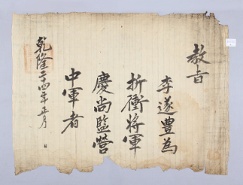 教旨
李遂豊為
折衝将軍
慶尚監營
中軍者
乾隆二十四年正月 日